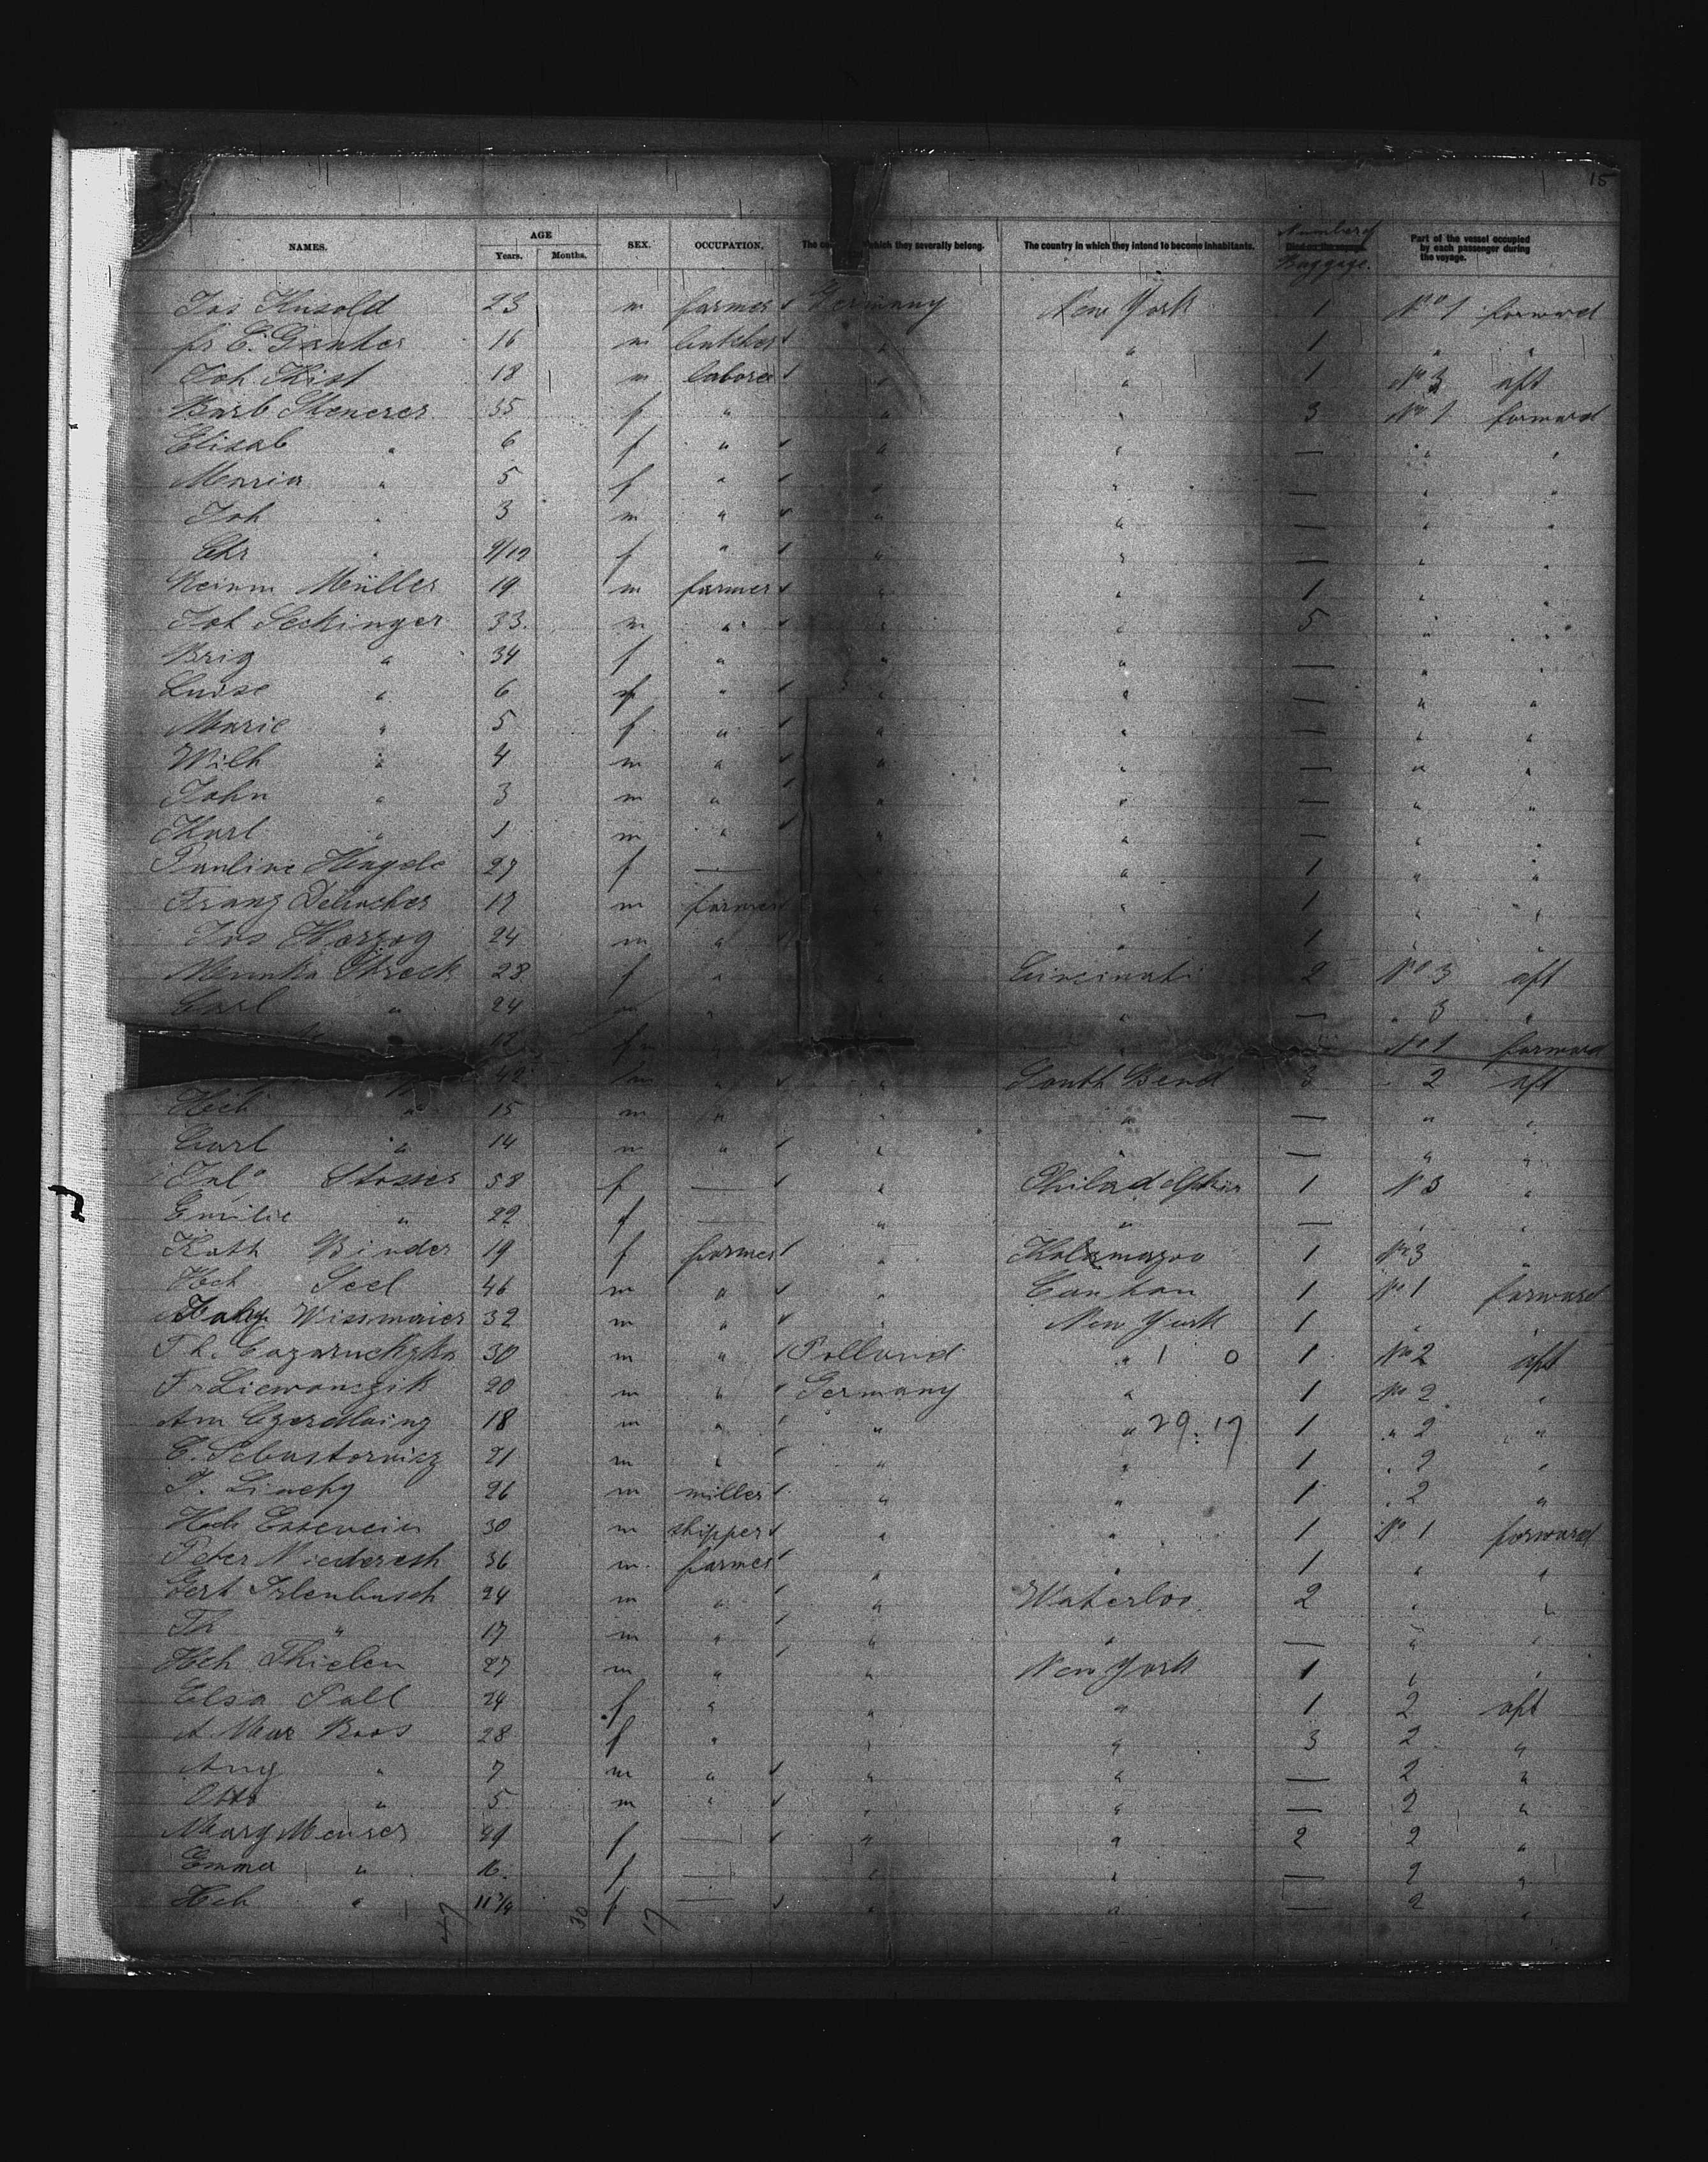 15
NAMES. AGE Years. Months. SEX. OCCUPATION. The which they severally belong. The country in which they intend to become inhabitants. Number of Baggage. Part of the vessel occupied by each passenger during the voyage.
Jos Kusold 23 m farmer Germany New York 1 No 1 forward
fr E. Ganter 16 m butcher " " 1 " "
Joh Kist 18 m laborer " " 1 No 3 aft
Barb 35 f " " " 3 No 1 forward
Elisab " 6 f " " " — " "
Maria " 5 f " " " — " "
Joh " 3 m " " " — " "
Chr " f " " " — " "
Müller 19 m farmer " " 1 " "
Joh Seckinger 33 m " " " 5 " "
Brig " 34 f " " " — " "
Luise " 6 f " " " — " "
Marie " 5 f " " " — " "
Wilh " 4 m " " " — " "
John " 3 m " " " — " "
Karl " 1 m " " " — " "
Pauline Hengele 27 f — " " 1 " "
Franz m farmer " " 1 " "
Jos Herzog 24 m " " " 1 " "
Streck 28 f " " Cincinati 2 No 3 aft
Carl " 24 m " " " — " 3 "
No 1 forward
42 m " " South Bend 3 2 aft
Hch " 15 m " " " — " "
Carl " 14 m " " " — " "
Stosser 58 f — " Philadelphia 1 No 3 "
Emilie " 22 f — " " — " "
Kath Binder 19 f farmer " Kalamazoo 1 No 3 "
Hch Seel 46 m " " Canton 1 No 1 forward
Wissmaier 32 m " " New York 1 " "
30 m " Polland " 1 0 1 No 2 aft
Fr Liewanczik 20 m " Germany " 1 No 2 "
18 m " " " 29.17 1 " 2 "
21 m " " " 1 " 2 "
26 m miller " " 1 " 2 "
Hch 30 m shipper " " 1 No 1 forward
Peter 36 m farmer " " 1 " "
Gert Irlenbusch 24 m " " Waterloo 2 " "
Th " 17 m " " " — " "
Hch Thielen 27 m " " New York 1 " "
Elsa Pall 24 f " " " 1 2 aft
A Mar Boos 28 f " " " 3 2 "
Aug " 7 m " " " — 2 "
Otto " 5 m " " " — 2 "
Marg Meurer f — " " 2 2 "
Emma " 16 f — " " — 2 "
Hch " f — " " — 2 "
47 30 17